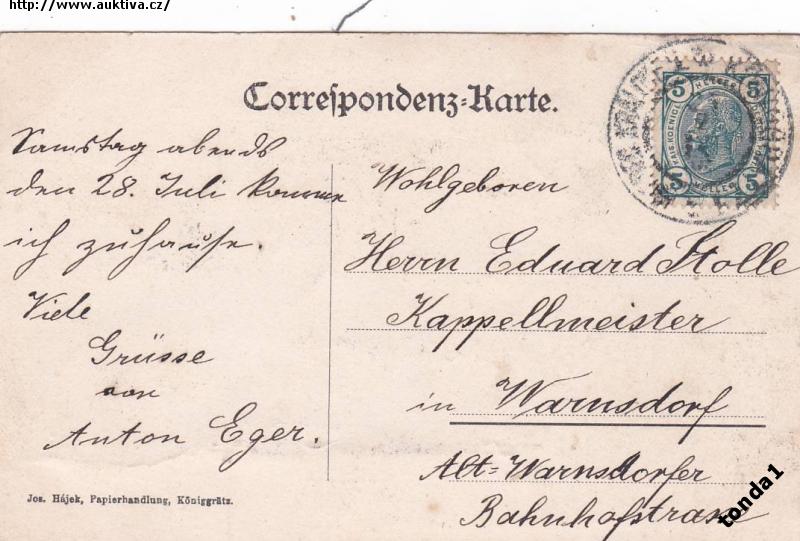 http://www.auktiva.cz/
Correſpondenz-Karte.
Samstag abends
den 28. Juli komme
ich zuhause.
Viele
Grüsse
von
Anton Eger.
Wohlgeboren
Herrn Eduard Stolle
Kappellmeister
in Warnsdorf
Alt-Warnsdorfer
Bahnhofstrasse
Jos. Hájek, Papierhandlung, Königgrätz.
5 HELLER 5
5 HELLER 5
tonda1